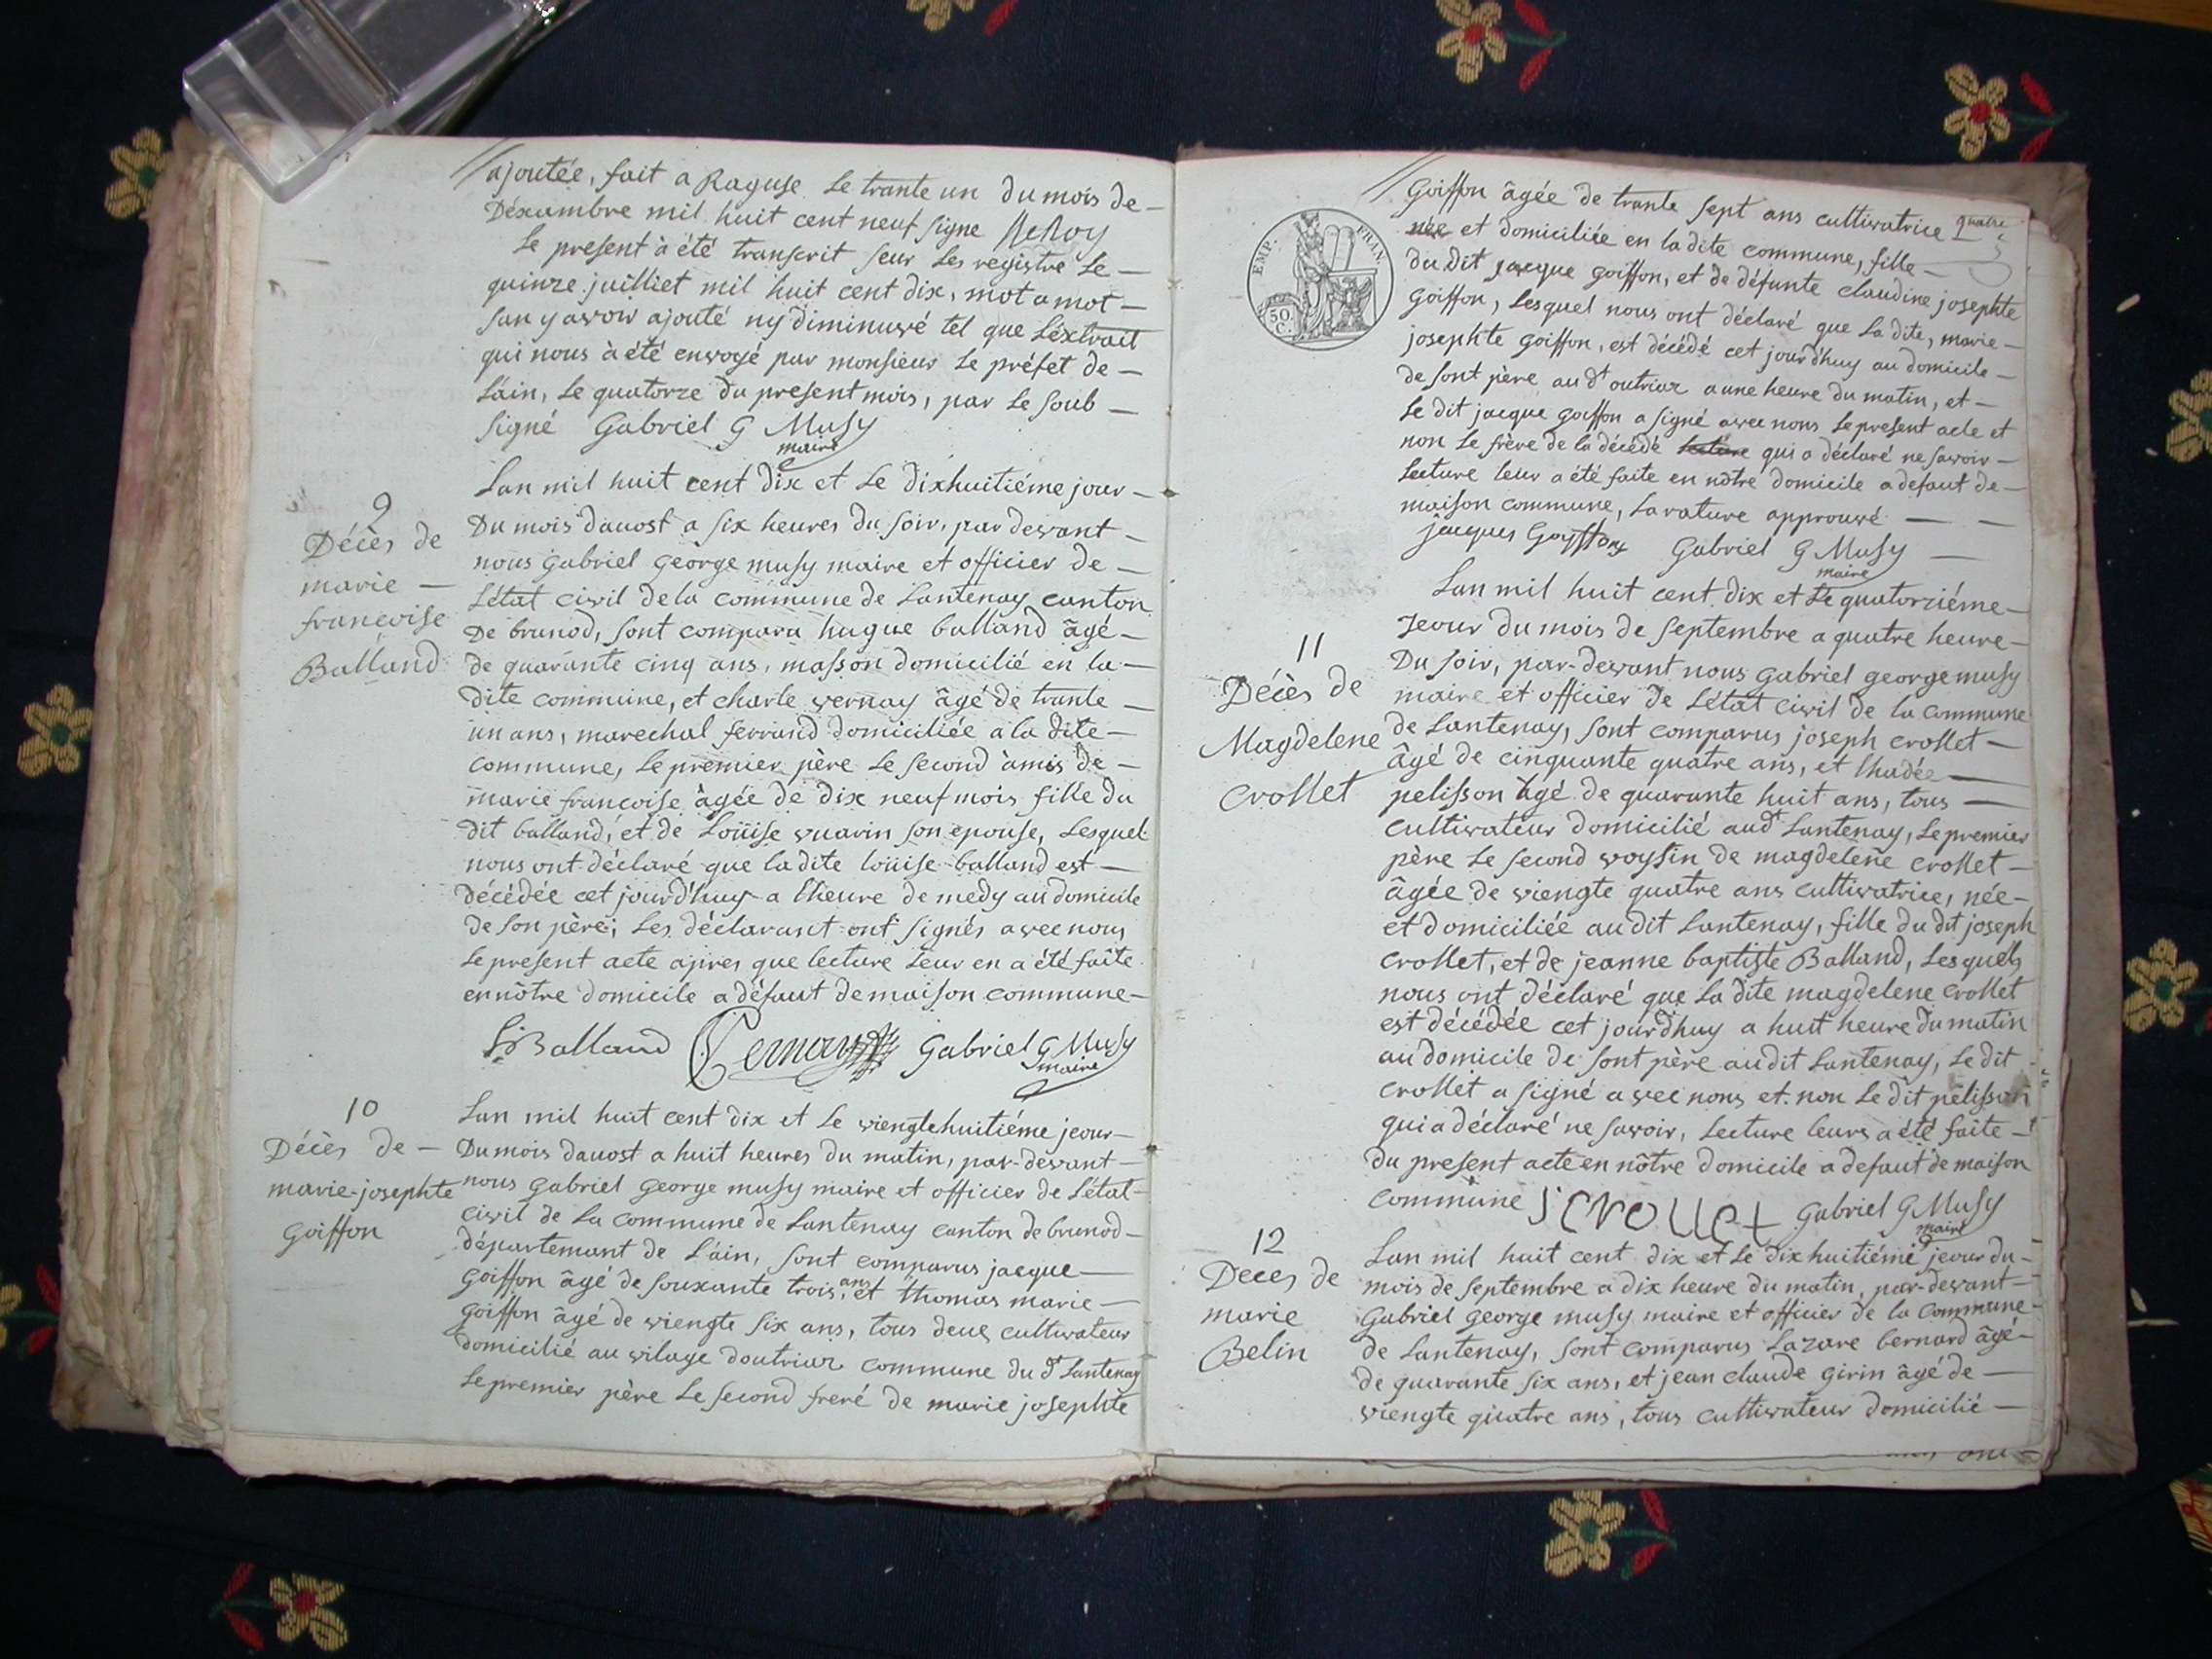 ajoutée, fait a Raguse le trante un du mois de
Déxambre mil huit cent neuf signe LeRoy
Le present à été transcrit seur les registre le
quinze juilliet mil huit cent dix, mot a mot
san y avoir ajouté ny diminuvé tel que l'éxtrait
qui nous à été envoyé par monsieur le préfet de
l'áin, le quatorze du present mois, par le soub
signé Gabriel G Musy
maire
9
Décès de
marie
francoise
Balland
Lan mil huit cent dix et le dixhuitiéme jour
Du mois dauost a six heures du soir, par devant
nous Gabriel george musy maire et officier de
l'état civil de la commune de Lantenay canton
De brunod, sont comparu hugue balland âgé
de quarante cinq ans, masson domicilié en la
dite commune, et charle vernay âgé de trante
un ans, marechal ferrand domiciliée a la dite
commune, le premier père le second àmis de
marie francoise àgée de dix neuf mois fille du
dit balland, et de Loüise vuarin son epouse, lesquel
nous ont déclaré que la dite loüise balland est
décédée cet jourd'huy a l'heure de medy au domicile
de son père; les déclarant ont signés avec nous
le present acte apres que lecture leur en a été faite
en nôtre domicile a défaut de maison commune
Balland Vernay Gabriel G Musy
maire
10
Décès de
marie-josephte
goiffon
Lan mil huit cent dix et le viengtehuitiéme jeour
Du mois dauost a huit heures du matin, par-devant
nous gabriel george musy maire et officier de l'état
civil de la commune de Lantenay canton de brunod
département de l'áin, sont comparus jacque
goiffon âgé de souxante trois ans et thomas marie
goiffon âgé de viengte six ans, tous deux cultivateur
domicilié au vilage doutriaz commune du dt Lantenay
le premier père le second freré de marie josephte
EMP. FRAN.
50 C.
quatre
goiffon âgée de trante sept ans cultivatrice
née et domiciliée en la dite commune, fille
du dit jacque goiffon, et de défunte claudine josephte
goiffon, lesquel nous ont déclaré que la dite, marie
josephte goiffon, est décédé cet jourd'huy au domicile
de sont père au dt outriaz a une heure du matin, et
le dit jacque goiffon a signé avec nous le present acte et
non le frère de la décédé lecture qui a déclaré ne savoir
lecture leur a été faite en nôtre domicile a defaut de
maison commune, la rature approuvé
jacques Goyffon Gabriel G Musy
maire
11
Décès de
Magdelene
Crollet
Lan mil huit cent dix et le quatorziéme
Jeour du mois de septembre a quatre heure
Du soir, par-devant nous gabriel george musy
maire et officier de l'état civil de la commune
de Lantenay, sont comparus joseph crollet
âgé de cinquante quatre ans, et thadée
pelisson âgé de quarante huit ans, tous
cultivateur domicilié audt Lantenay, le premier
père le second voysin de magdelene crollet
âgée de viengte quatre ans cultivatrice, née
et domiciliée au dit Lantenay, fille du dit joseph
crollet, et de jeanne baptiste Balland, lesquels
nous ont déclaré que la dite magdelene crollet
est décédée cet jourdhuy a huit heure du matin
au domicile de sont père audit Lantenay, le dit
crollet a signé avec nous et non le dit pelisson
qui a déclaré ne savoir, lecture leurs a été faite
du present acte en nôtre domicile a defaut de maison
commune J Crollet Gabriel G Musy
maire
12
Deces de
marie
Belin
Lan mil huit cent dix et le dix huitiéme jeour du
mois de septembre a dix heure du matin, par-devant
Gabriel george musy maire et officier de la commune
de Lantenay, sont comparus Lazare bernard âgé
de quarante six ans, et jean claude girin âgé de
viengte quatre ans, tous cultivateur domicilié